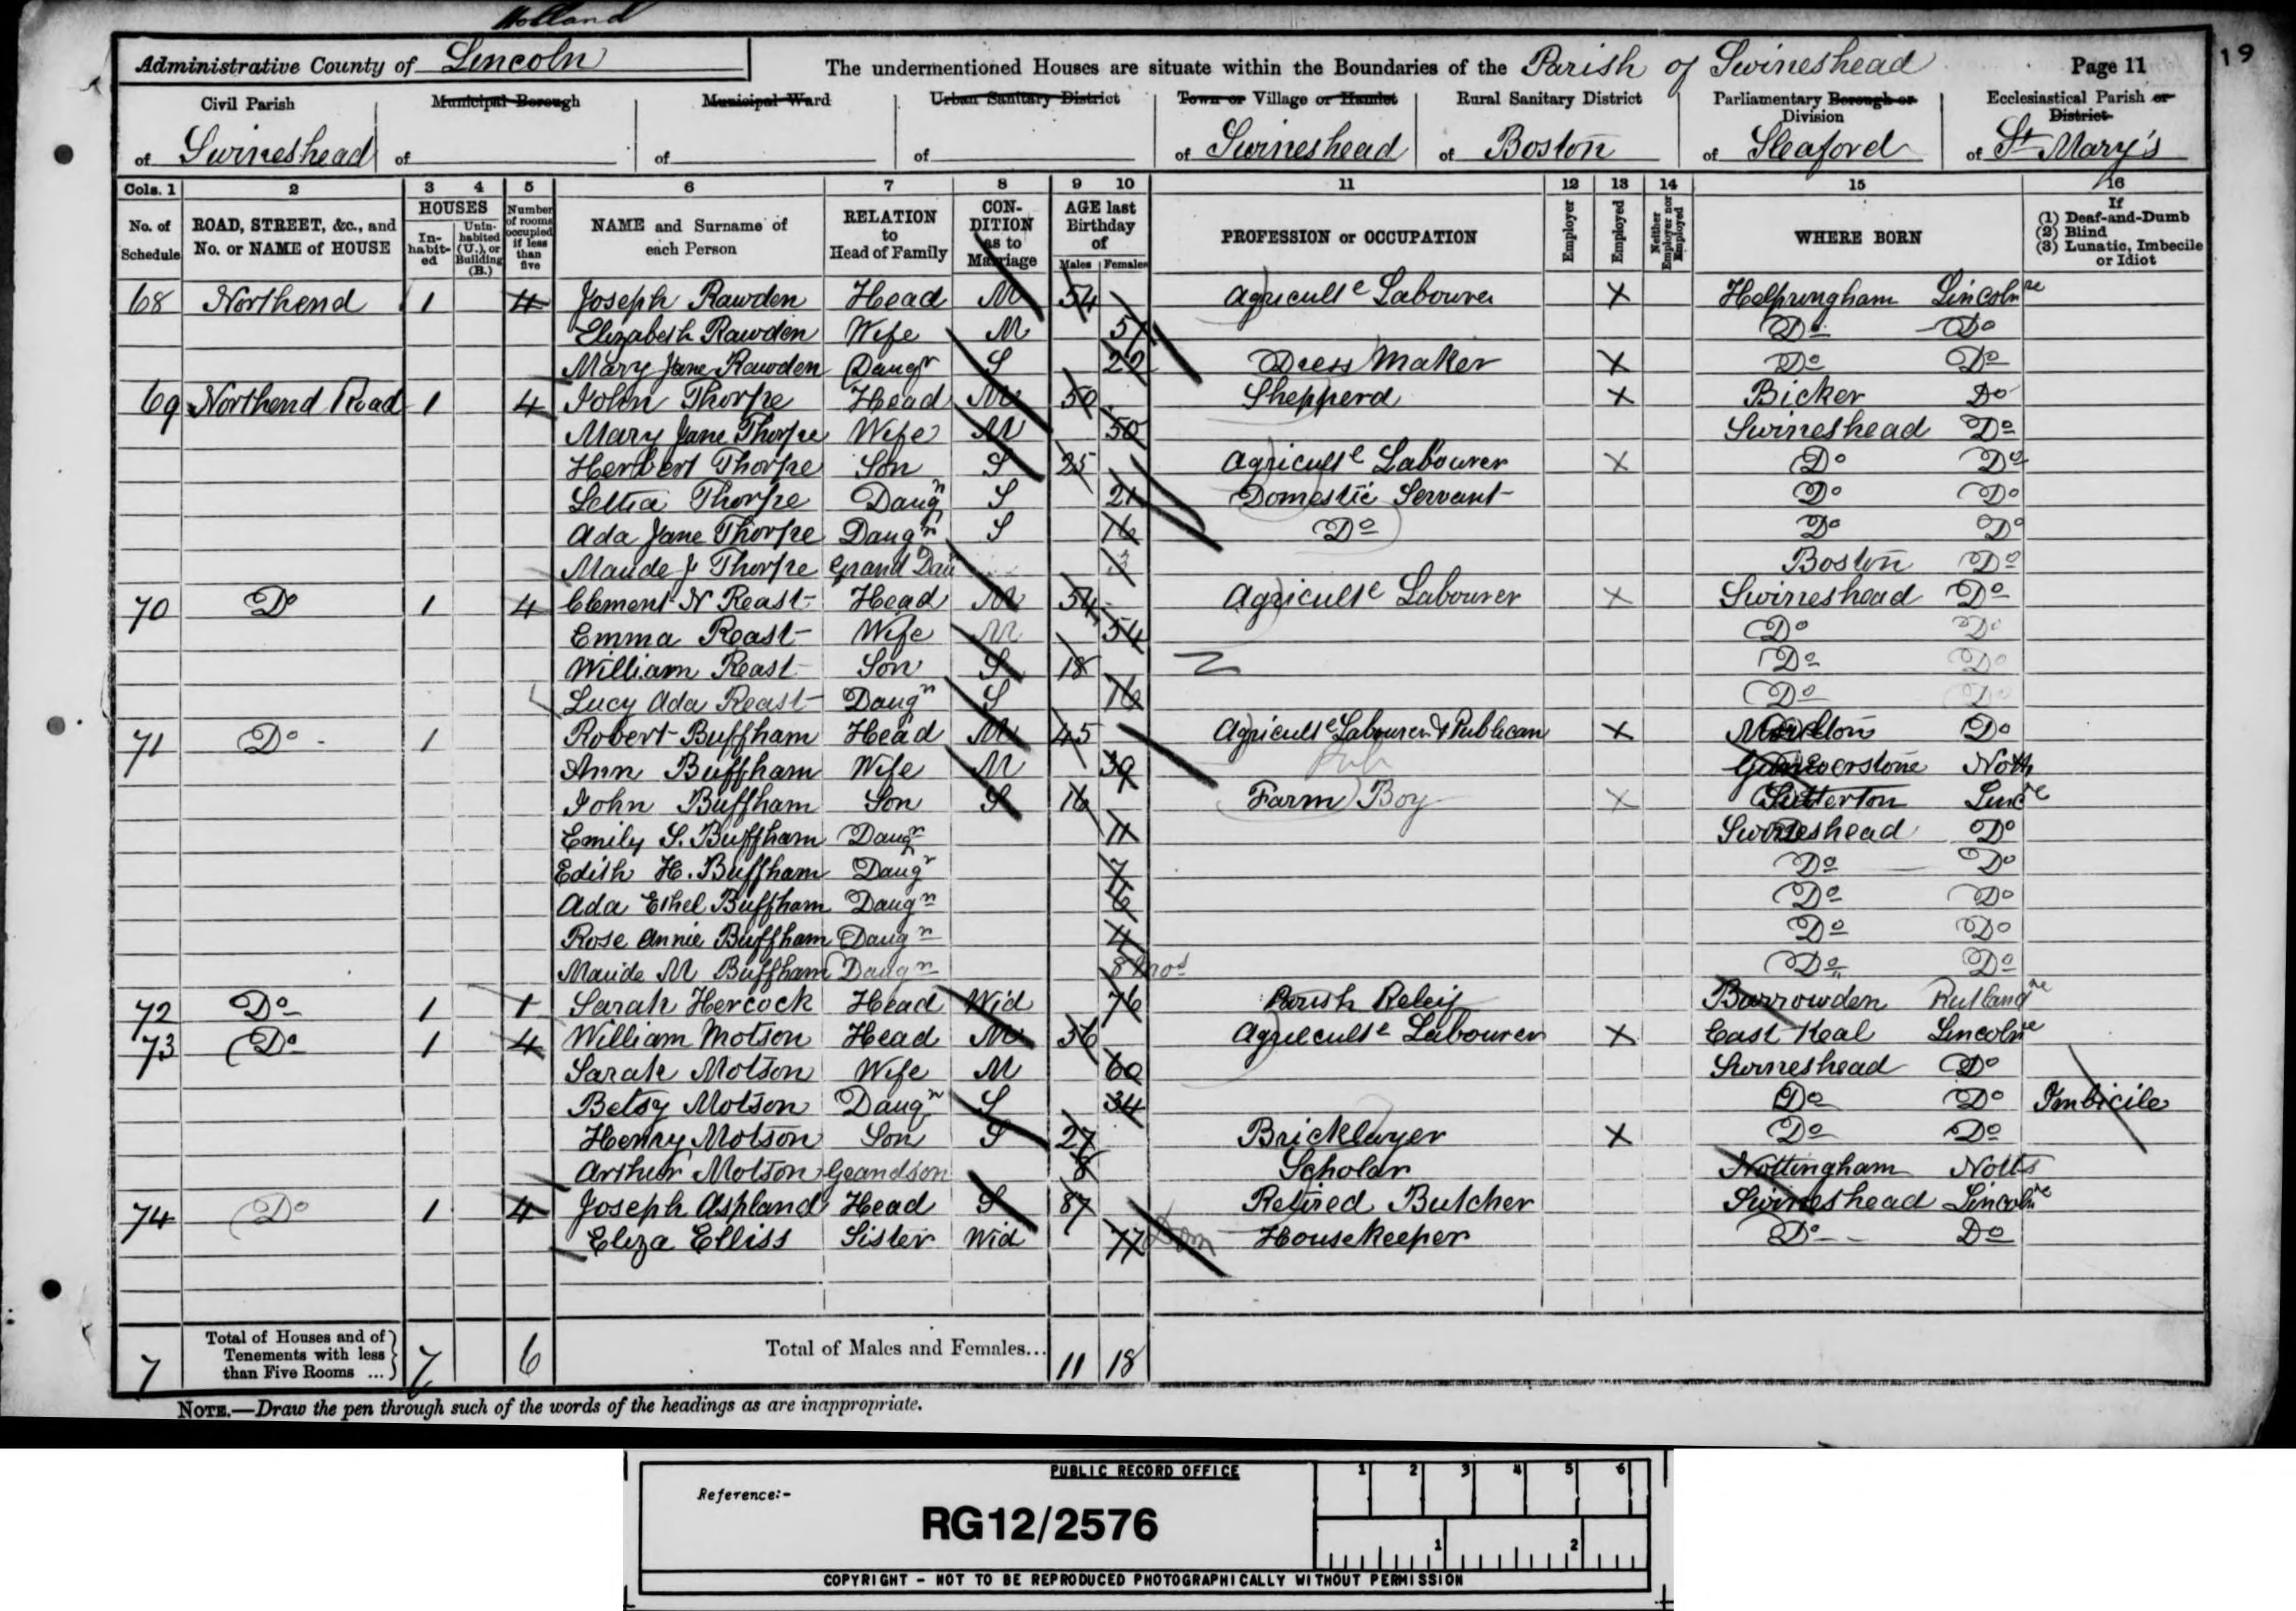 Holland
19
Administrative County of Lincoln The undermentioned Houses are situate within the Boundaries of the Parish of Swineshead Page 11
Civil Parish of Swineshead
Municipal Borough of
Municipal Ward of
Urban Sanitary District of
Town or Village or Hamlet of Swineshead
Rural Sanitary District of Boston
Parliamentary Borough or Division of Sleaford
Ecclesiastical Parish or District of St Mary's
Cols. 1 2 3 4 5 6 7 8 9 10 11 12 13 14 15 16
No. of Schedule
ROAD, STREET, &c., and No. or NAME of HOUSE
HOUSES
In-habit-ed
Unin-habited (U.), or Building (B.)
Number of rooms occupied if less than five
NAME and Surname of each Person
RELATION to Head of Family
CON-DITION as to Marriage
AGE last Birthday of
Males Females
PROFESSION or OCCUPATION
Employer
Employed
Neither Employer nor Employed
WHERE BORN
If
(1) Deaf-and-Dumb
(2) Blind
(3) Lunatic, Imbecile or Idiot
68 Northend 1 4 Joseph Rawden Head M 54 Agricult^e Labourer X Helpringham Lincoln^re
Elizabeth Rawden Wife M 51 Do Do
Mary Jane Rawden Daugr S 22 Dress Maker X Do Do
69 Northend Road 1 4 John Thorpe Head M 50 Shepperd X Bicker Do
Mary Jane Thorpe Wife M 50 Swineshead Do
Herbert Thorpe Son S 25 Agricult^e Labourer X Do Do
Lettia Thorpe Daugr S 21 Domestic Servant Do Do
Ada Jane Thorpe Daugr S 16 Do Do Do
Maude J Thorpe Grand Dau 3 Boston Do
70 Do 1 4 Clement N Reast Head M 54 Agricult^e Labourer X Swineshead Do
Emma Reast Wife M 54 Do Do
William Reast Son S 18 Do Do
Lucy Ada Reast Daugr S 16 Do Do
71 Do 1 Robert Buffham Head M 45 Agricult^e Labourer & Publican X Moulton Do
Ann Buffham Wife M 39 Notts
John Buffham Son S 16 Farm Boy X Sutterton Linc^re
Emily S. Buffham Daugr 11 Swineshead Do
Edith H. Buffham Daugr 7 Do Do
Ada Ethel Buffham Daugr 6 Do Do
Rose Annie Buffham Daugr 4 Do Do
Maude M Buffham Daugr 8 mos Do Do
72 Do 1 1 Sarah Hercock Head Wid 76 Parish Releif Barrowden Rutland^re
73 Do 1 4 William Motson Head M 56 Agriecult^e Labourer X East Keal Lincoln^re
Sarah Motson Wife M 60 Swineshead Do
Betsy Motson Daugr S 34 Do Do Imbicile
Henry Motson Son S 27 Bricklayer X Do Do
Arthur Motson Grandson 8 Scholar Nottingham Notts
74 Do 1 4 Joseph Aspland Head S 87 Retired Butcher Swineshead Lincoln^re
Eliza Elliss Sister Wid 77 Dom Housekeeper Do Do
7 Total of Houses and of Tenements with less than Five Rooms ... 7 6 Total of Males and Females... 11 18
NOTE.—Draw the pen through such of the words of the headings as are inappropriate.
PUBLIC RECORD OFFICE
1 2 3 4 5 6
Reference:-
RG12/2576
1 2
COPYRIGHT - NOT TO BE REPRODUCED PHOTOGRAPHICALLY WITHOUT PERMISSION